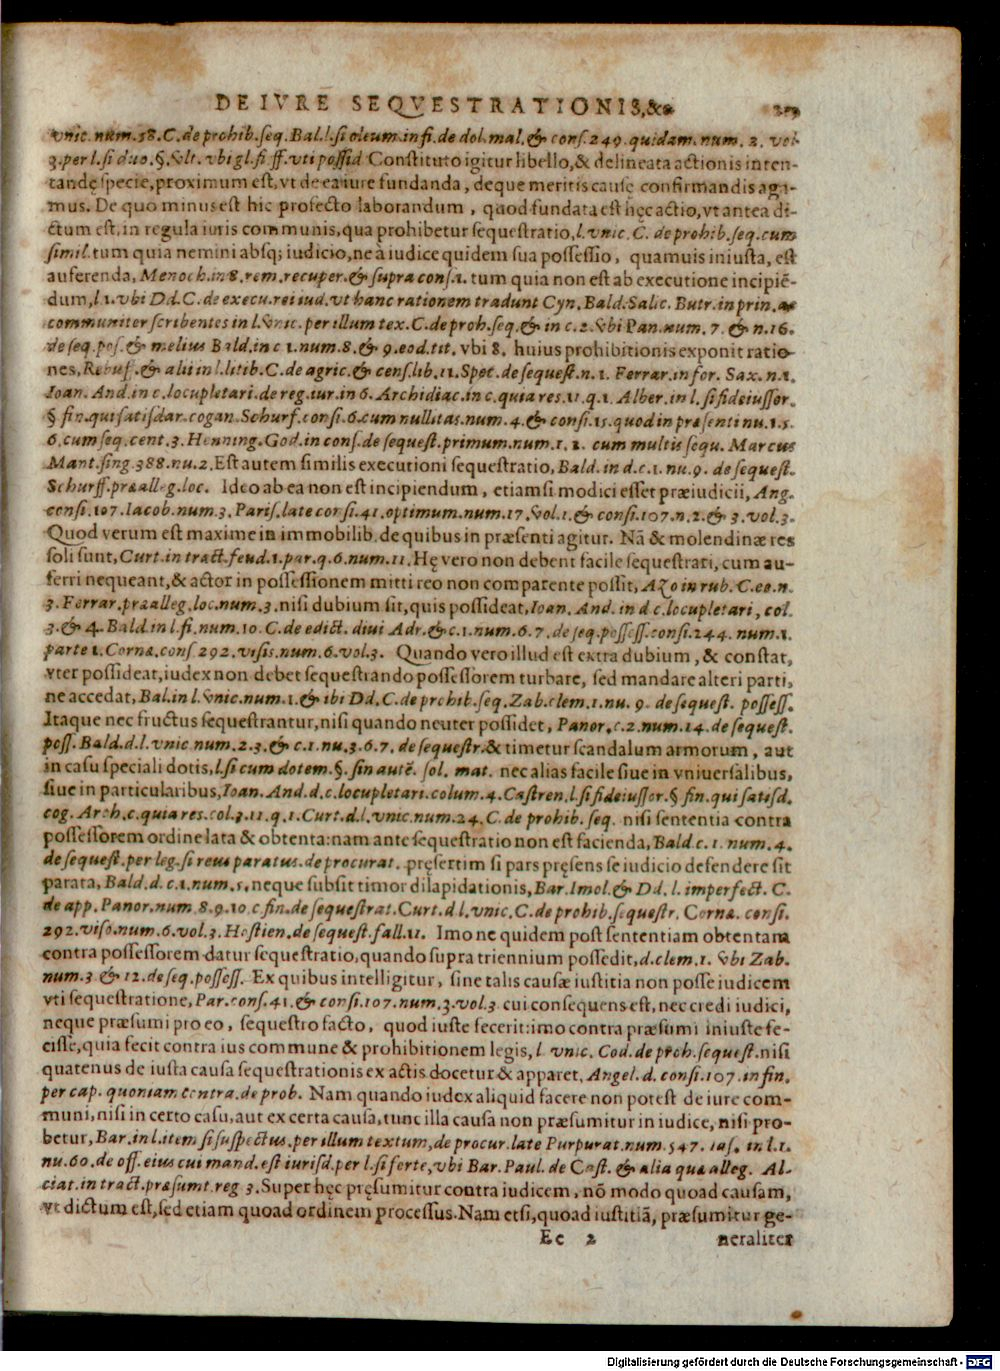 DE IVRE SEQVESTRATIONIS,&c.
vnic. num. 58. C. de prohib. seq. Bal. l. si oleum. in fi. de dol. mal. & cons. 249. quidam. num. 2. vol
3. per l. si duo. §. vlt. vbi gl. fi ff. vti possid Constituto igitur libello, & delineata actionis inten-
tandę specie, proximum est, vt de ea iure fundanda, deque meritis causę confirmandis aga-
mus. De quo minus est hic profecto laborandum, quod fundata est hęc actio, vt antea di-
ctum est, in regula iuris communis, qua prohibetur sequestratio, l. vnic. C. de prohib. seq. cum
simil. tum quia nemini absq; iudicio, ne à iudice quidem sua possessio, quamuis iniusta, est
auferenda, Menoch. in 8. rem. recuper. & supra cons. 1. tum quia non est ab executione incipiē-
dum, l. 1. vbi Dd. C. de execu. rei iud. vt hanc rationem tradunt Cyn. Bald. Salic. Butr. in prin. ac
communiter scribentes in l. vnic. per illum tex. C. de proh. seq. & in c. 2. vbi Pan. num. 7. & n. 16.
de seq. pos. & melius Bald. in c 1. num. 8. & 9. eod. tit. vbi 8. huius prohibitionis exponit ratio-
nes, Rebuf. & alii in l. litib. C. de agric. & cens. lib. 11. Spec. de sequest. n. 1. Ferrar. in for. Sax. n. 1.
Ioan. And. in c. locupletari. de reg. iur. in 6. Archidiac. in c. quia res. 11. q. 1. Alber. in l. si fideiussor.
§ fin. qui satisdar. cogan. Schurf. consi. 6. cum nullitas. num. 4. & consi. 15. quod in præsenti nu. 1. 5.
6. cum seq. cent. 3. Henning. God. in cons. de sequest. primum num. 1. 2. cum multis sequ. Marcus
Mant. sing. 388. nu. 2. Est autem similis executioni sequestratio, Bald. in d. c. 1. nu. 9. de sequest.
Schurff. præalleg. loc. Ideo ab ea non est incipiendum, etiamsi modici esset præiudicii, Ang.
consi. 107. Iacob. num. 3. Paris. late consi. 41. optimum. num. 17. vol. 1. & consi. 107. n. 2. & 3. vol. 3.
Quod verum est maxime in immobilib. de quibus in præsenti agitur. Nā & molendinæ res
soli sunt, Curt. in tract. feud. 1. par. q. 6. num. 11. Hę vero non debent facile sequestrati, cum au-
ferri nequeant, & actor in possessionem mitti reo non comparente possit, Azo in rub. C. eo. n.
3. Ferrar. præalleg. loc. num. 3. nisi dubium sit, quis possideat, Ioan. And. in d c. locupletari, col.
3. & 4. Bald. in l. fi. num. 10. C. de edict. diui Adr. & c. 1. num. 6. 7. de seq. possess. consi. 244. num. 1.
parte 1. Cornæ. cons 292. visis. num. 6. vol. 3. Quando vero illud est extra dubium, & constat,
vter possideat, iudex non debet sequestrando possessorem turbare, sed mandare alteri parti,
ne accedat, Bal. in l. vnic. num. 1. & ibi Dd. C. de prohib. seq. Zab. clem. 1. nu. 9. de sequest. possess.
Itaque nec fructus sequestrantur, nisi quando neuter possidet, Panor. c. 2. num. 14. de sequest.
poss. Bald. d. l. vnic num. 2. 3. & c. 1. nu. 3. 6. 7. de sequestr. & timetur scandalum armorum, aut
in casu speciali dotis, l. si cum dotem. §. sin autē. sol. mat. nec alias facile siue in vniuersalibus,
siue in particularibus, Ioan. And. d. c. locupletari. colum. 4. Castren. l. si fideiussor. § fin. qui satisd.
cog. Arch. c. quia res. col. 3. 11. q. 1. Curt. d. l. vnic. num. 24. C. de prohib. seq. nisi sententia contra
possessorem ordine lata & obtenta: nam ante sequestratio non est facienda, Bald. c. 1. num. 4.
de sequest. per leg. si reus paratus. de procurat. pręsertim si pars pręsens se iudicio defendere sit
parata, Bald. d. c. 1. num. 5. neque subsit timor dilapidationis, Bar. Imol. & Dd. l. imperfect. C.
de app. Panor. num 8. 9. 10 c fin. de sequestrat. Curt. d. l. vnic. C. de prohib. sequestr. Cornæ. consi.
292. viso. num. 6. vol. 3. Hostien. de sequest. fall. 11. Imo ne quidem post sententiam obtentam
contra possessorem datur sequestratio, quando supra triennium possedit, d. clem. 1. vbi Zab.
num. 3 & 12. de seq. possess. Ex quibus intelligitur, sine talis causæ iustitia non posse iudicem
vti sequestratione, Par. cons. 41. & consi. 107. num. 3. vol. 3. cui consequens est, nec credi iudici,
neque præsumi pro eo, sequestro facto, quod iuste fecerit: imo contra præsumi iniuste fe-
cisse, quia fecit contra ius commune & prohibitionem legis, l. vnic. Cod. de proh. sequest. nisi
quatenus de iusta causa sequestrationis ex actis docetur & apparet, Angel. d. consi. 107. in fin.
per cap. quoniam contra. de prob. Nam quando iudex aliquid facere non potest de iure com-
muni, nisi in certo casu, aut ex certa causa, tunc illa causa non præsumitur in iudice, nisi pro-
betur, Bar. in l. item si suspectus. per illum textum, de procur. late Purpurat. num. 547. Ias. in l. 1.
nu. 60. de off. eius cui mand. est iurisd. per l. si forte, vbi Bar. Paul. de Cast. & alia quæ alleg. Al-
ciat. in tract. præsumt. reg 3. Super hęc pręsumitur contra iudicem, nō modo quoad causam,
vt dictum est, sed etiam quoad ordinem processus. Nam etsi, quoad iustitiā, præsumitur ge-
Ee 2 neraliter
Digitalisierung gefördert durch die Deutsche Forschungsgemeinschaft - DFG